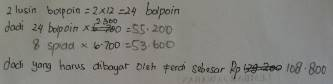 2 lusin bolpoin = 2 × 12 = 24 bolpoin
2.300
dadi 24 bolpoin × 6.700 = 55.200
8 spido × 6.700 = 53.600
dadi yang harus dibayar oleh Ferdi sebesar Rp 128.200 108.800